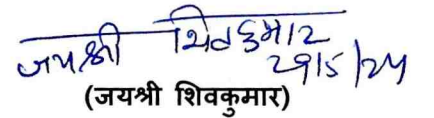 जयश्री शिवकुमार
29/5/24
(जयश्री शिवकुमार)